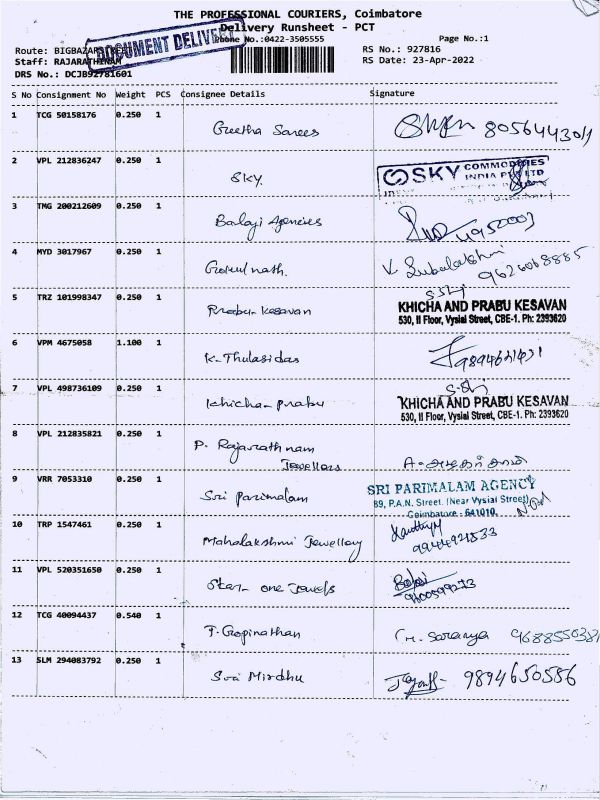 THE PROFESSIONAL COURIERS, Coimbatore
Delivery Runsheet - PCT
DOCUMENT DELIVERY
Phone No.:0422-3505555
Page No.:1
Route: BIGBAZAR
RS No.: 927816
Staff: RAJARATHINAM
RS Date: 23-Apr-2022
DRS No.: DCJB92781601
S No Consignment No Weight PCS Consignee Details Signature
1 TCG 50158176 0.250 1 Geetha Sarees
2 VPL 212836247 0.250 1 SKY.
SKY COMMODITIES
INDIA PVT LTD
3 TMG 200212609 0.250 1 Balaji Agencies
4 MYD 3017967 0.250 1 Gokul nath. V. Subalakshmi
9626068885
5 TRZ 101998347 0.250 1 Prabu-Kesavan
KHICHA AND PRABU KESAVAN
530, II Floor, Vysial Street, CBE-1. Ph: 2393620
6 VPM 4675058 1.100 1 K. Thulasidas
7 VPL 498736109 0.250 1 Khicha-prabu
KHICHA AND PRABU KESAVAN
530, II Floor, Vysial Street, CBE-1. Ph: 2393620
8 VPL 212835821 0.250 1 P. Rajarathnam
Jewellers
9 VRR 7053310 0.250 1 Sri parimalam
SRI PARIMALAM AGENCY
89, P.A.N. Street. (Near Vysial Street)
Coimbatore - 641010.
10 TRP 1547461 0.250 1 Mahalakshmi Jewellery
9944921533
11 VPL 520351650 0.250 1 Star-one Jewels
12 TCG 40094437 0.540 1 T. Gopinathan M. Saranya
13 SLM 294083792 0.250 1 Sri Mirdhu 9894650556